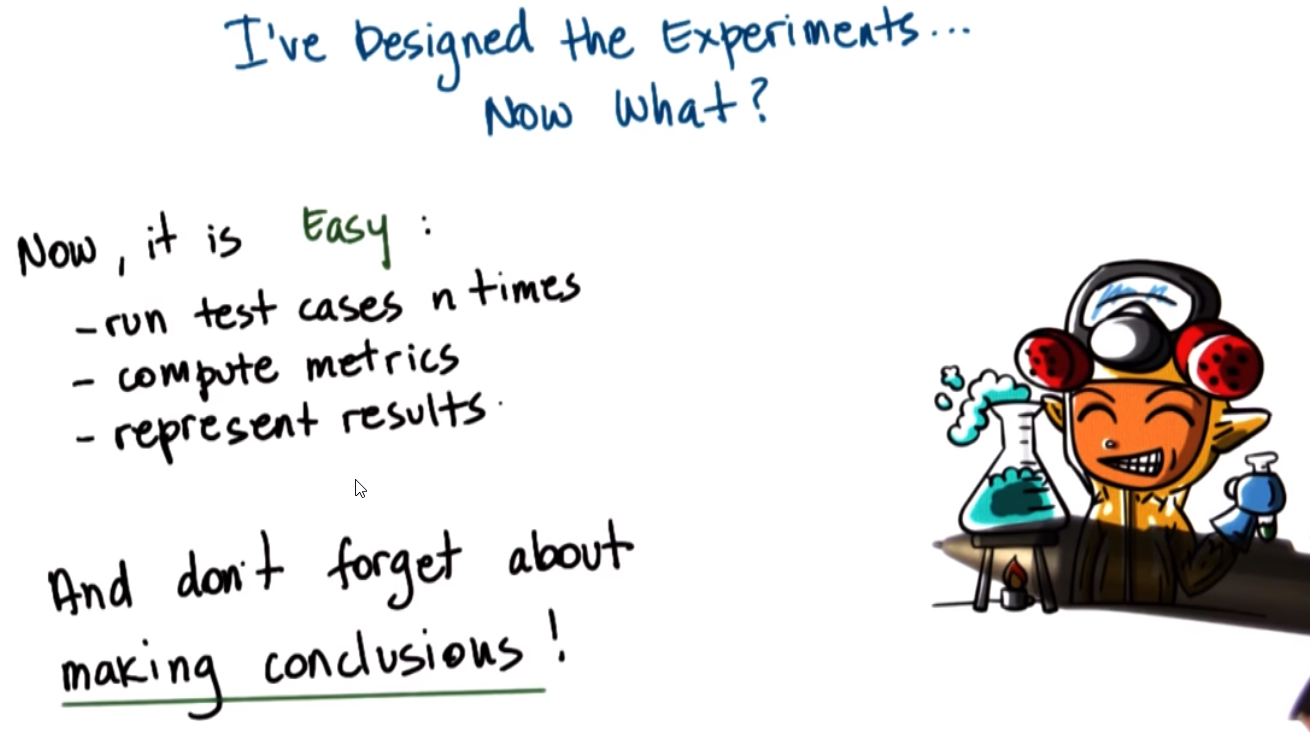 I've Designed the Experiments...
Now What?
Now, it is Easy:
- run test cases n times
- compute metrics
- represent results.
And don't forget about
making conclusions!